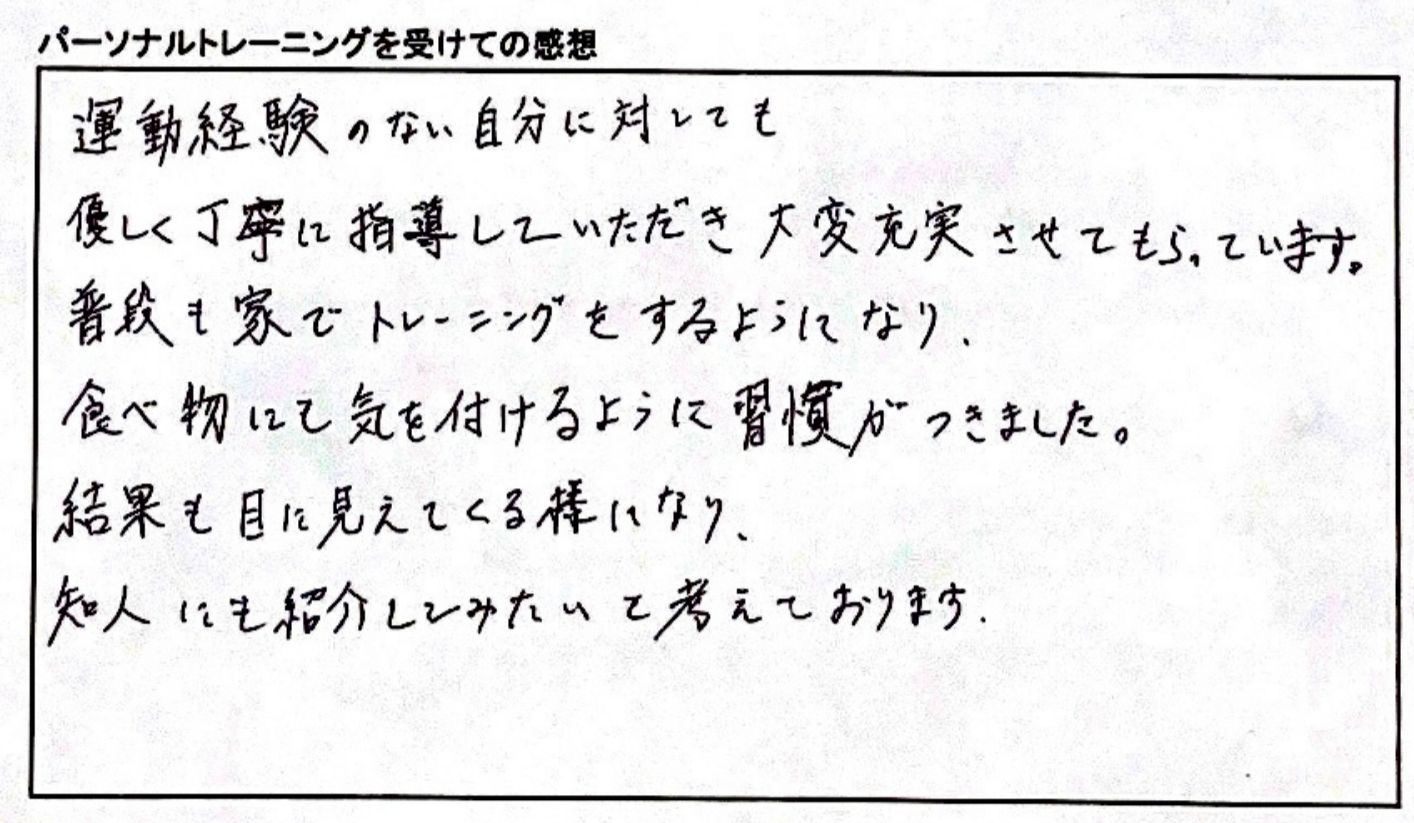 パーソナルトレーニングを受けての感想
運動経験のない自分に対しても
優しく丁寧に指導していただき大変充実させてもらっています。
普段も家でトレーニングをするようになり、
食べ物にも気を付けるように習慣がつきました。
結果も目に見えてくる様になり、
知人にも紹介してみたいと考えております.